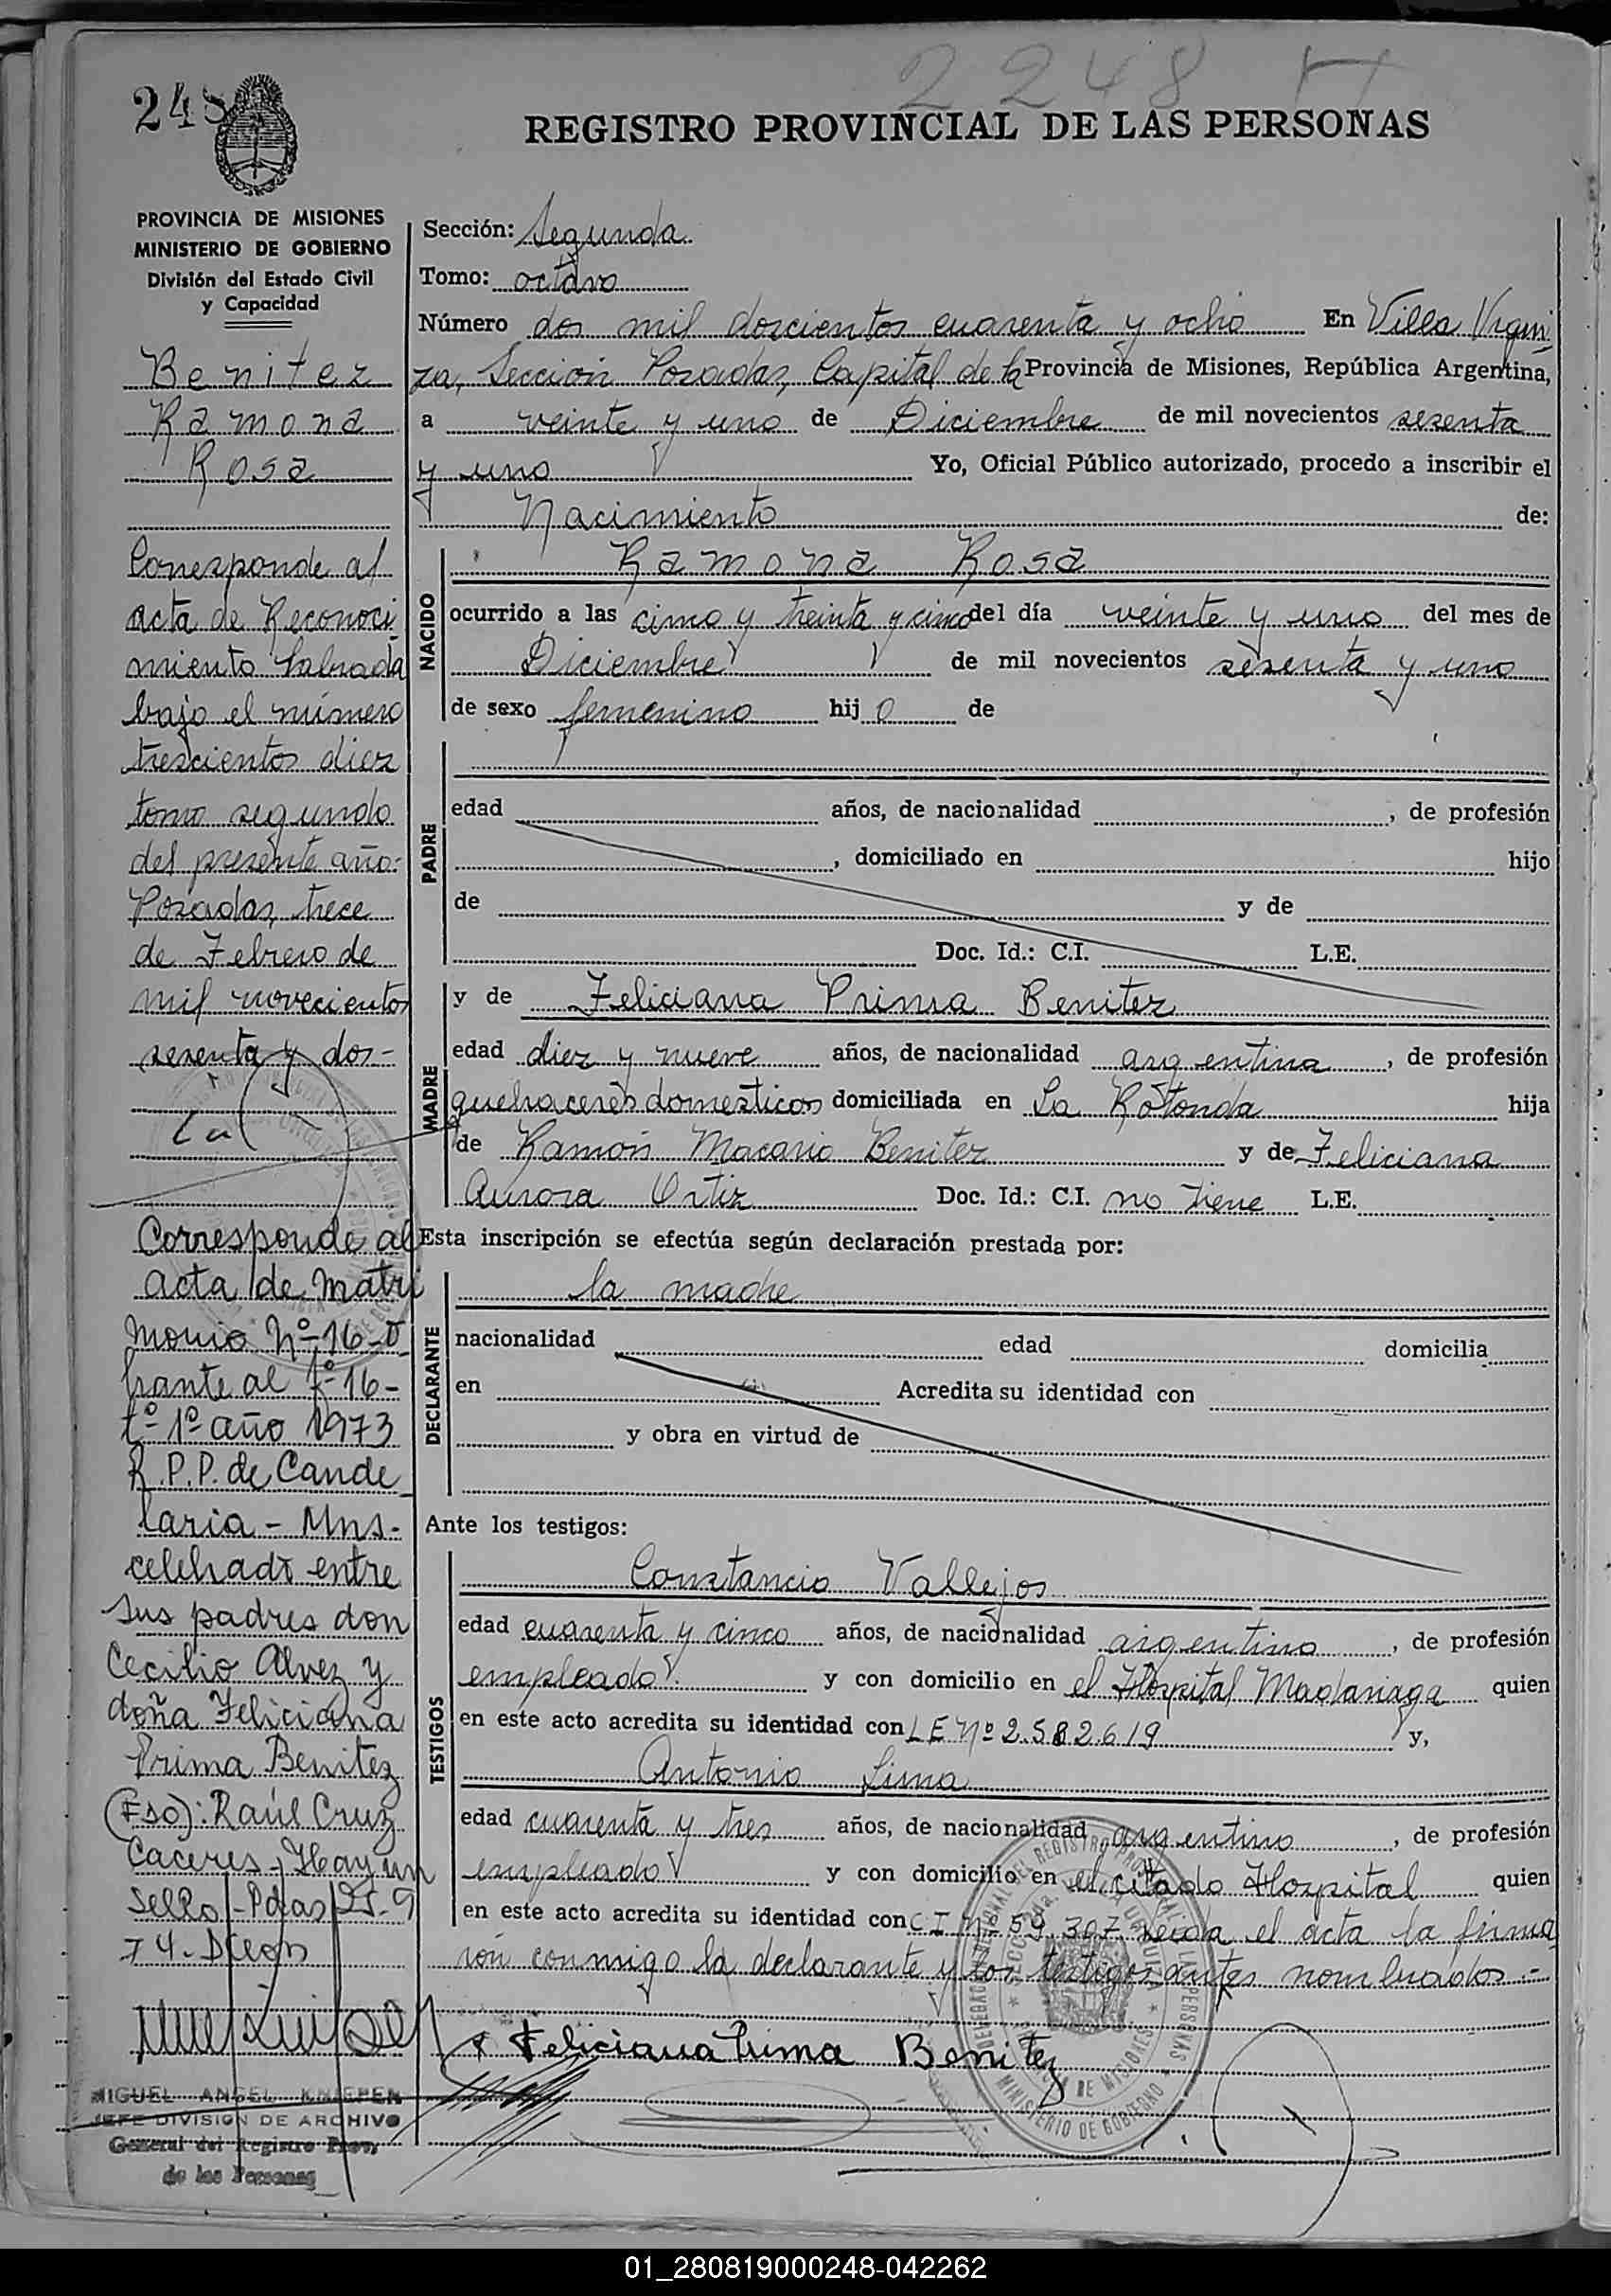 2248
248
REGISTRO PROVINCIAL DE LAS PERSONAS
PROVINCIA DE MISIONES
MINISTERIO DE GOBIERNO
División del Estado Civil
y Capacidad
Benitez
Ramona
Rosa
Corresponde al
acta de Reconoci
miento labrada
bajo el número
trescientos diez
tomo segundo
del presente año:
Posadas, trece
de Febrero de
mil novecientos
sesenta y dos=
Corresponde al
acta de Matri
monio Nº 16-O
brante al fº 16-
tº 1º año 1973
R.P.P. de Cande
laria - Mns-
celebrado entre
sus padres don
Cecilio Alvez y
doña Feliciana
Prima Benitez
(Fdo): Raúl Cruz
Caceres, Hay un
Sello - Pdas 25-9
74-
MIGUEL ANGEL KNIEPEN
JEFE DIVISION DE ARCHIVO
General del Registro Prov,
de las Personas
Sección: Segunda
Tomo: octavo
Número dos mil doscientos cuarenta y ocho En Villa Urqui
za, Sección Posadas, Capital de la Provincia de Misiones, República Argentina,
a veinte y uno de Diciembre de mil novecientos sesenta
y uno Yo, Oficial Público autorizado, procedo a inscribir el
Nacimiento de:
NACIDO
Ramona Rosa
ocurrido a las cinco y treinta y cinco del día veinte y uno del mes de
Diciembre de mil novecientos sesenta y uno
de sexo femenino hij o de
PADRE
edad años, de nacionalidad , de profesión
, domiciliado en hijo
de y de
Doc. Id.: C.I. L.E.
MADRE
y de Feliciana Prima Benitez
edad diez y nueve años, de nacionalidad argentina , de profesión
quehaceres domesticos domiciliada en La Rotonda hija
de Ramón Macario Benitez y de Feliciana
Aurora Ortiz Doc. Id.: C.I. no tiene L.E.
Esta inscripción se efectúa según declaración prestada por:
DECLARANTE
la madre
nacionalidad edad domicilia
en Acredita su identidad con
y obra en virtud de
Ante los testigos:
TESTIGOS
Constancio Vallejos
edad cuarenta y cinco años, de nacionalidad argentino , de profesión
empleado y con domicilio en el Hospital Madariaga quien
en este acto acredita su identidad con LE Nº 2.582.619 y,
Antonio Lima
edad cuarenta y tres años, de nacionalidad argentino , de profesión
empleado y con domicilio en el citado Hospital quien
en este acto acredita su identidad con C I Nº 59.307. Leida el acta la firma
ron conmigo la declarante y los testigos antes nombrados.-
Feliciana Prima Benitez
01_280819000248-042262